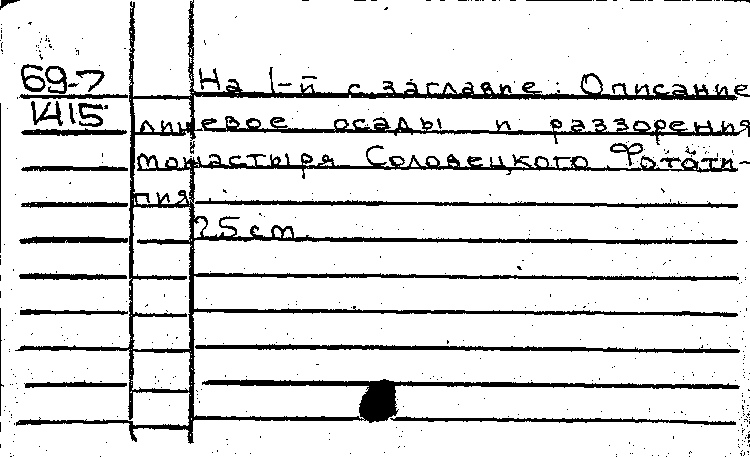 69-7 На 1-й с. заглавие: Описание
1415 лицевое осады и раззорения
монастыря Соловецкого. Фототи-
пия.
25 cm.